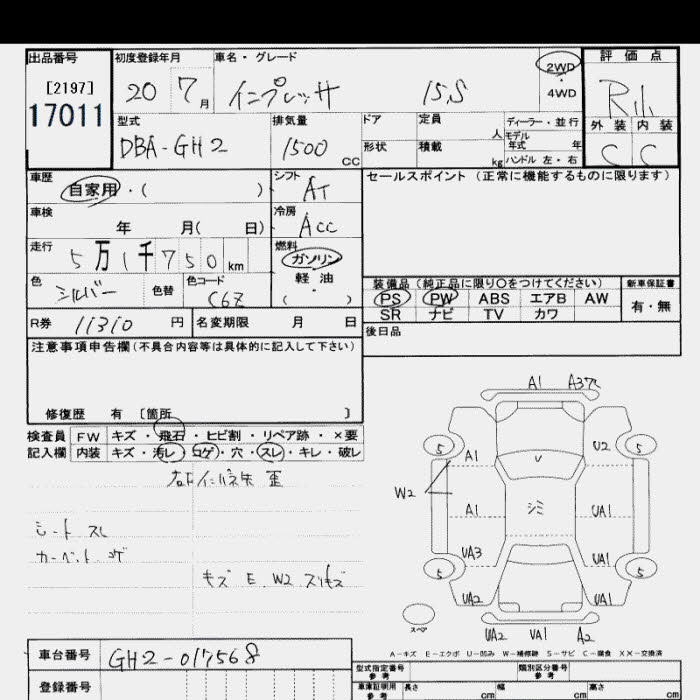 出品番号 初度登録年月 車名・グレード 2WD・4WD 評価点
[2197]
17011
20 7月 インプレッサ 15S
型式 排気量 ドア 定員 人 ディーラー・並行
外装 内装
モデル年式 年
DBA-GH2 1500 CC 形状 積載 kg ハンドル 左・右 C C
車歴 シフト セールスポイント (正常に機能するものに限ります)
自家用・( ) AT
車検 冷房
年 月( 日) ACC
走行 燃料
5万1千750km ガソリン
軽油
( )
色 色替 色コード
シルバー C6Z
装備品(純正品に限り○をつけてください) 新車保証書
PS PW ABS エアB AW 有・無
SR ナビ TV カワ
R券 11310 円 名変期限 月 日
後日品
注意事項申告欄(不具合内容等は具体的に記入して下さい)
修復歴 有 〔箇所 〕
検査員 FW キズ・飛石・ヒビ割・リペア跡・×要
記入欄 内装 キズ・汚レ・コゲ・穴・スレ・キレ・破レ
シート スレ
カーペット コゲ
キズ E W2 スリキズ
A1
5 A1 U2 5
W2 U
A1 シミ UA1
UA3 UA1
5 5
UA2 UA1
スペア
UA2 UA1 A2
A-キズ E-エクボ U-凹み W-補修跡 S-サビ C-腐食 XX-交換済
車台番号 GH2-017568
登録番号
型式指定番号 参考 類別区分番号 参考
車庫証明用 参考 長さ cm 幅 cm 高さ cm